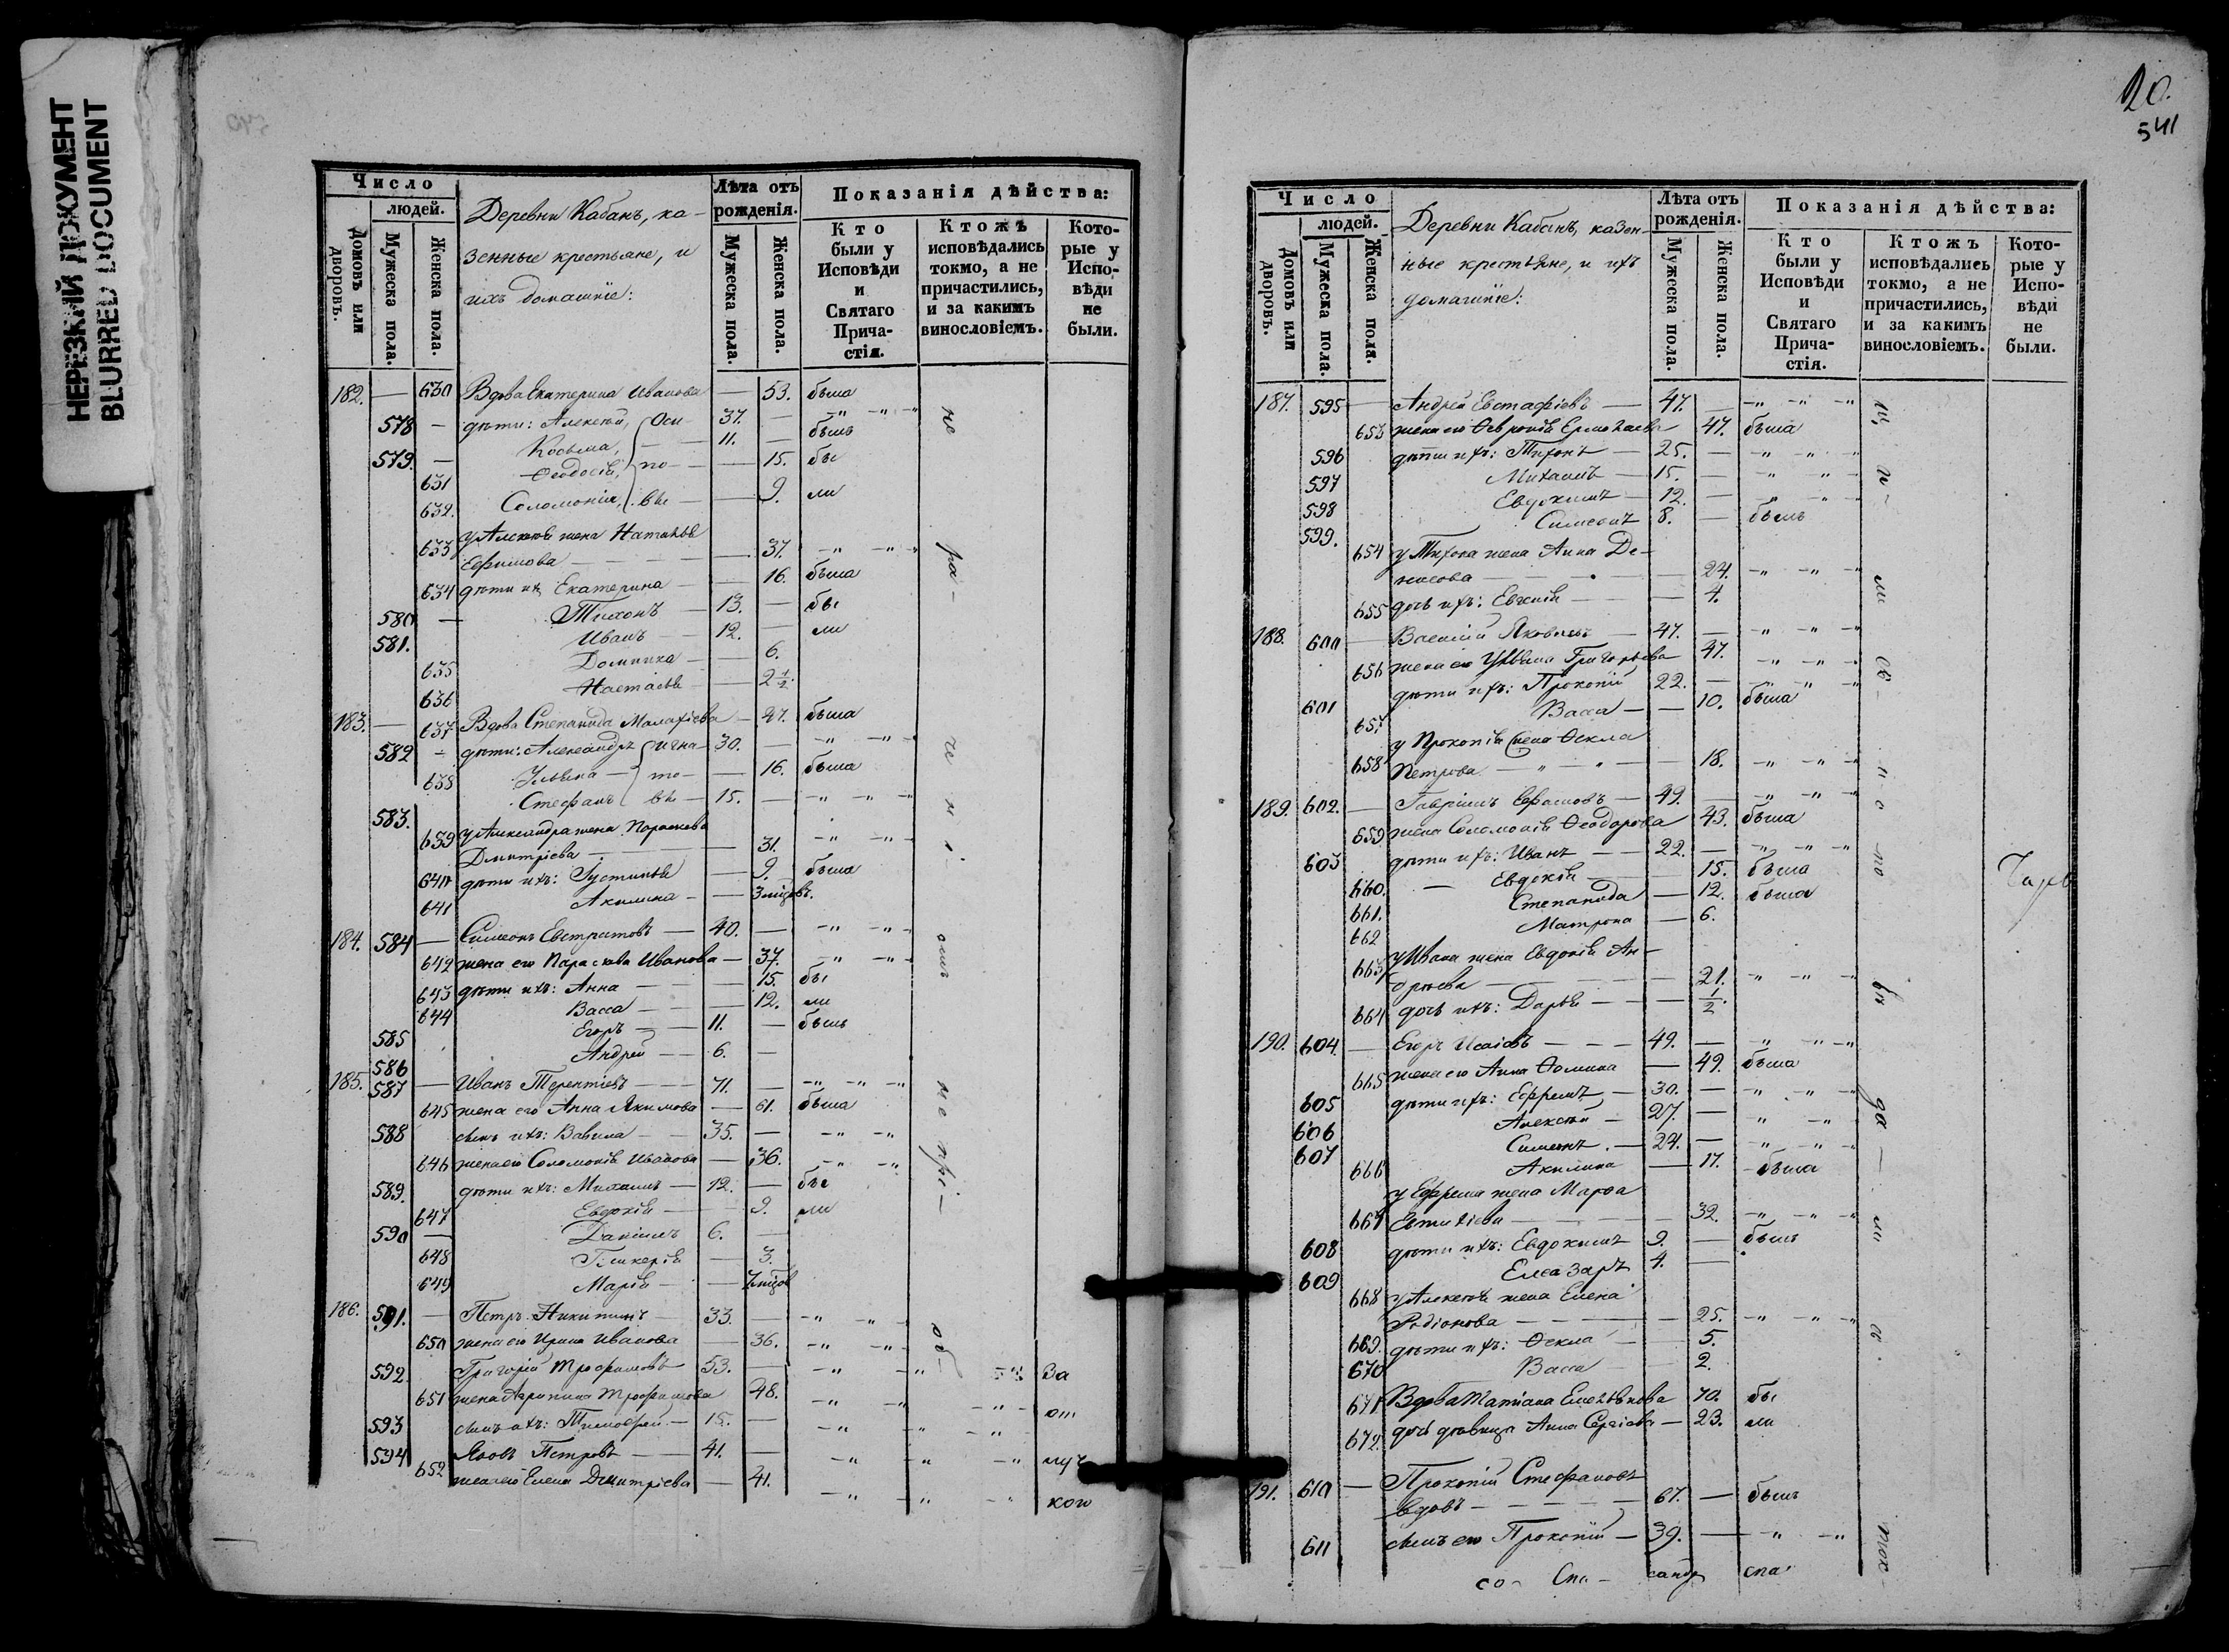 НЕРЕЗКИЙ ДОКУМЕНТ
BLURRED DOCUMENT
Число
людей.
Домовъ или дворовъ.
Мужеска пола.
Женска пола.
Деревни Кабанъ, ка-
зенные крестьяне, и
ихъ домашніе:
Лѣта отъ рожденія.
Мужеска пола.
Женска пола.
Показанія дѣйства:
Кто были у Исповѣди и Святаго Прича-стія.
Ктожъ исповѣдались токмо, а не причастились, и за какимъ винословіемъ.
Кото-рые у Испо-вѣди не были.
182. — 630 Вдова Екатерина Иванова — 53. была
578 — дѣти: Алексѣй, Оси- 37. — -"- -"-
579. — Косьма, 11. — былъ
631 Ѳеодосія, по- — 15. бы
632. Соломонія, вы — 9. ли
633 у Алексѣя жена Наталія
Ефимова — 37. -"- -"-
634 дѣти их Екатерина — 16. была
580 — Тихонъ — 13. — бы
581. Иванъ — 12. — ли
635 Домника — 6.
636 Настасья — 2 1/2.
183. — 637 Вдова Степанида Малахіева — 47. была
582 — дѣти: Александръ Игна- 30. — -"- -"-
638 Ульяна — то- — 16. была
583. Стефанъ вы — 15. — -"- -"-
639 у Александра жена Параскева
Дмитріева — 31. -"- -"-
640 дѣти ихъ: Густинья — 9. была
641 Акилина — 3 мѣсцовъ.
184. 584 — Симеонъ Евстратовъ — 40. — -"- -"-
642 жена его Параскева Иванова — 37. -"- -"-
643 дѣти ихъ: Анна — 15. бы
644 Васса — 12. ли
585 Егоръ — 11. — былъ
586 Андрей — 6. —
185. 587 — Иванъ Терентіевъ — 71. — -"- -"-
645 жена его Анна Якимова — 61. была
588 сынъ ихъ: Вавила — 35. — -"- -"-
646 жена его Соломонія Иванова — 36. -"- -"-
589. дѣти ихъ: Михаилъ — 12. — бы
647 Евдокія — 9. ли
590 — Даніилъ 6. —
648 Гликерія — 3.
649 Марія — мѣсцов
186. 591. — Петръ Никитинъ — 33. — -"- -"-
650 жена его Ирина Иванова — 36. -"- -"-
592. Григорій Трофимовъ 53. — -"- -"- За
651 жена Агрипина Трофимова 48. -"- -"- от
593 сынъ ихъ: Тимоѳей — 15. — -"- -"-
594 Яковъ Петровъ — 41. — -"- -"- луч
652 жена его Елена Дмитріева — 41. -"- -"- кою
20.
541
Число
людей.
Домовъ или дворовъ.
Мужеска пола.
Женска пола.
Деревни Кабанъ, казен-
ные крестьяне, и ихъ
домашніе:
Лѣта отъ рожденія.
Мужеска пола.
Женска пола.
Показанія дѣйства:
Кто были у Исповѣди и Святаго Прича-стія.
Ктожъ исповѣдались токмо, а не причастились, и за какимъ винословіемъ.
Кото-рые у Испо-вѣди не были.
187. 595 — Андрей Евстафіевъ — 47. — -"- -"-
653 жена его Ѳевронія Ермолаева 47. была
596 дѣти ихъ: Тихонъ — 25. — -"- -"-
597 Михаилъ — 15. — -"- -"-
598 Евдокимъ — 12. — -"- -"-
599. Симеонъ 8. — былъ
654 у Тихона жена Анна Де-
нисова — 24. -"- -"-
655 дочь ихъ: Евгенія — 4.
188. 600 — Василій Яковлевъ — 47. — -"- -"-
656 жена его Ульяна Григорьева 47. -"- -"-
601 дѣти ихъ: Прокопій 22. — -"- -"-
657 Васса — 10. была
у Прокопія жена Ѳекла
658 Петрова — 18. -"- -"-
189. 602. — Гавріилъ Ефимовъ — 49. — -"- -"-
659 жена Соломонія Ѳеодорова 43. была
603 дѣти ихъ: Иванъ — 22. — -"- -"-
660. Евдокія — 15. была
661. Степанида — 12. была
662 Матрона — 6.
663 у Ивана жена Евдокія Ан-
дреева — 21. -"- -"-
664 дочь ихъ: Дарья — 1/2.
190. 604. — Егоръ Исаіевъ — 49. — -"- -"-
665 жена его Анна Ѳомина — 49. была
605 дѣти ихъ: Ефремъ — 30. — -"- -"-
606 Алексѣй — 27. — -"- -"-
607 Симеонъ — 24. — -"- -"-
666 Акилина — 17. была
у Ефрема жена Марѳа
667 Евтихіева — 32. -"- -"-
608 дѣти ихъ: Евдокимъ 9. — былъ
609 Елеазаръ 4. —
668 у Алексѣя жена Елена
Родіонова — 25. -"- -"-
669. дѣти ихъ: Ѳекла — 5.
670 Васса — 2.
671 Вдова Татіана Емельянова 70. бы
672. дочь дѣвица Анна Сергіева — 23. ли
191. 610 — Прокопій Стефановъ
вдовъ — 67. — былъ
611 сынъ его Прокопій — 39. — -"- -"-